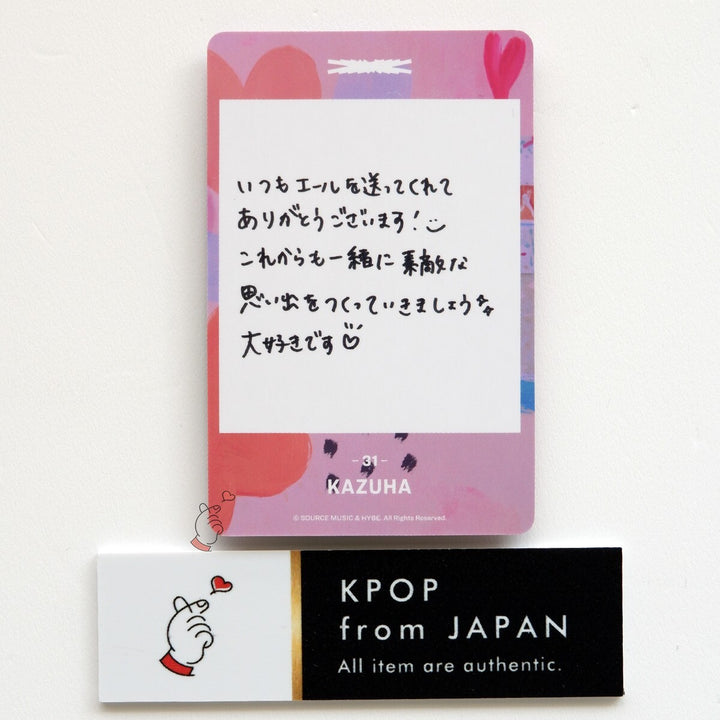 いつもエールを送ってくれて
ありがとうございます!
これからも一緒に素敵な
思い出をつくっていきましょう
大好きです♡
-31-
KAZUHA
© SOURCE MUSIC & HYBE. All Rights Reserved.
KPOP
from JAPAN
All item are authentic.